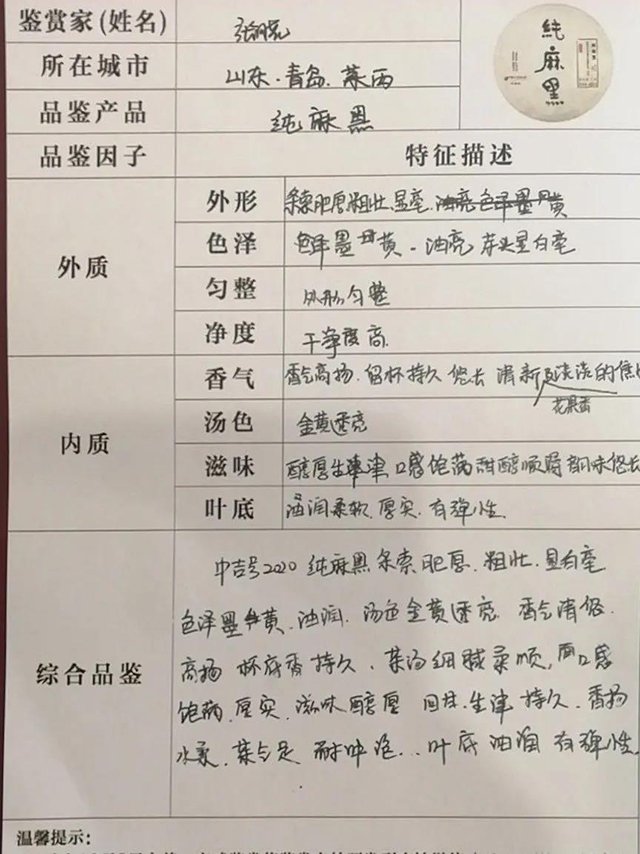 鉴赏家(姓名)
純麻黑
所在城市 山东·青岛·莱西
品鉴产品 纯麻黑
品鉴因子 特征描述
外质
外形 条索肥厚粗壮.显毫.油亮色泽墨黄
色泽 色泽墨黄.油亮 芽头显白毫
匀整 外形匀整
净度 干净度高
内质
香气 香气高扬.留杯持久 悠长 清新及淡淡的
花果香
汤色 金黄透亮
滋味 醇厚生津 口感饱满甜醇顺滑韵味悠长
叶底 油润柔软.厚实.有弹性
综合品鉴
中吉号2020 纯麻黑条索肥厚.粗壮.显白毫
色泽墨黄.油润.汤色金黄透亮 香气清悠
高扬 杯底香持久.茶汤细腻柔顺,口感
饱满.厚实.滋味醇厚 回甘.生津持久.香扬
水柔.茶气足 耐冲泡...叶底油润有弹性
温馨提示: